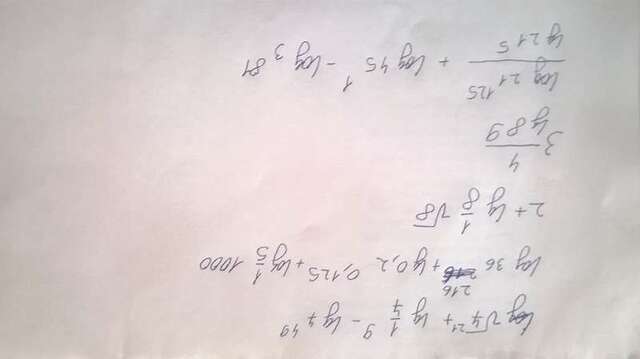 log √7 21 + lg 1/7 9 - lg 7 49
log 36 216 + lg 0,2 0,125 + log 1/5 1000
2 + lg 1/8 √8
3 4/lg 8 9
log 21 125/lg 21 5 + log 45 1 - log 3 81